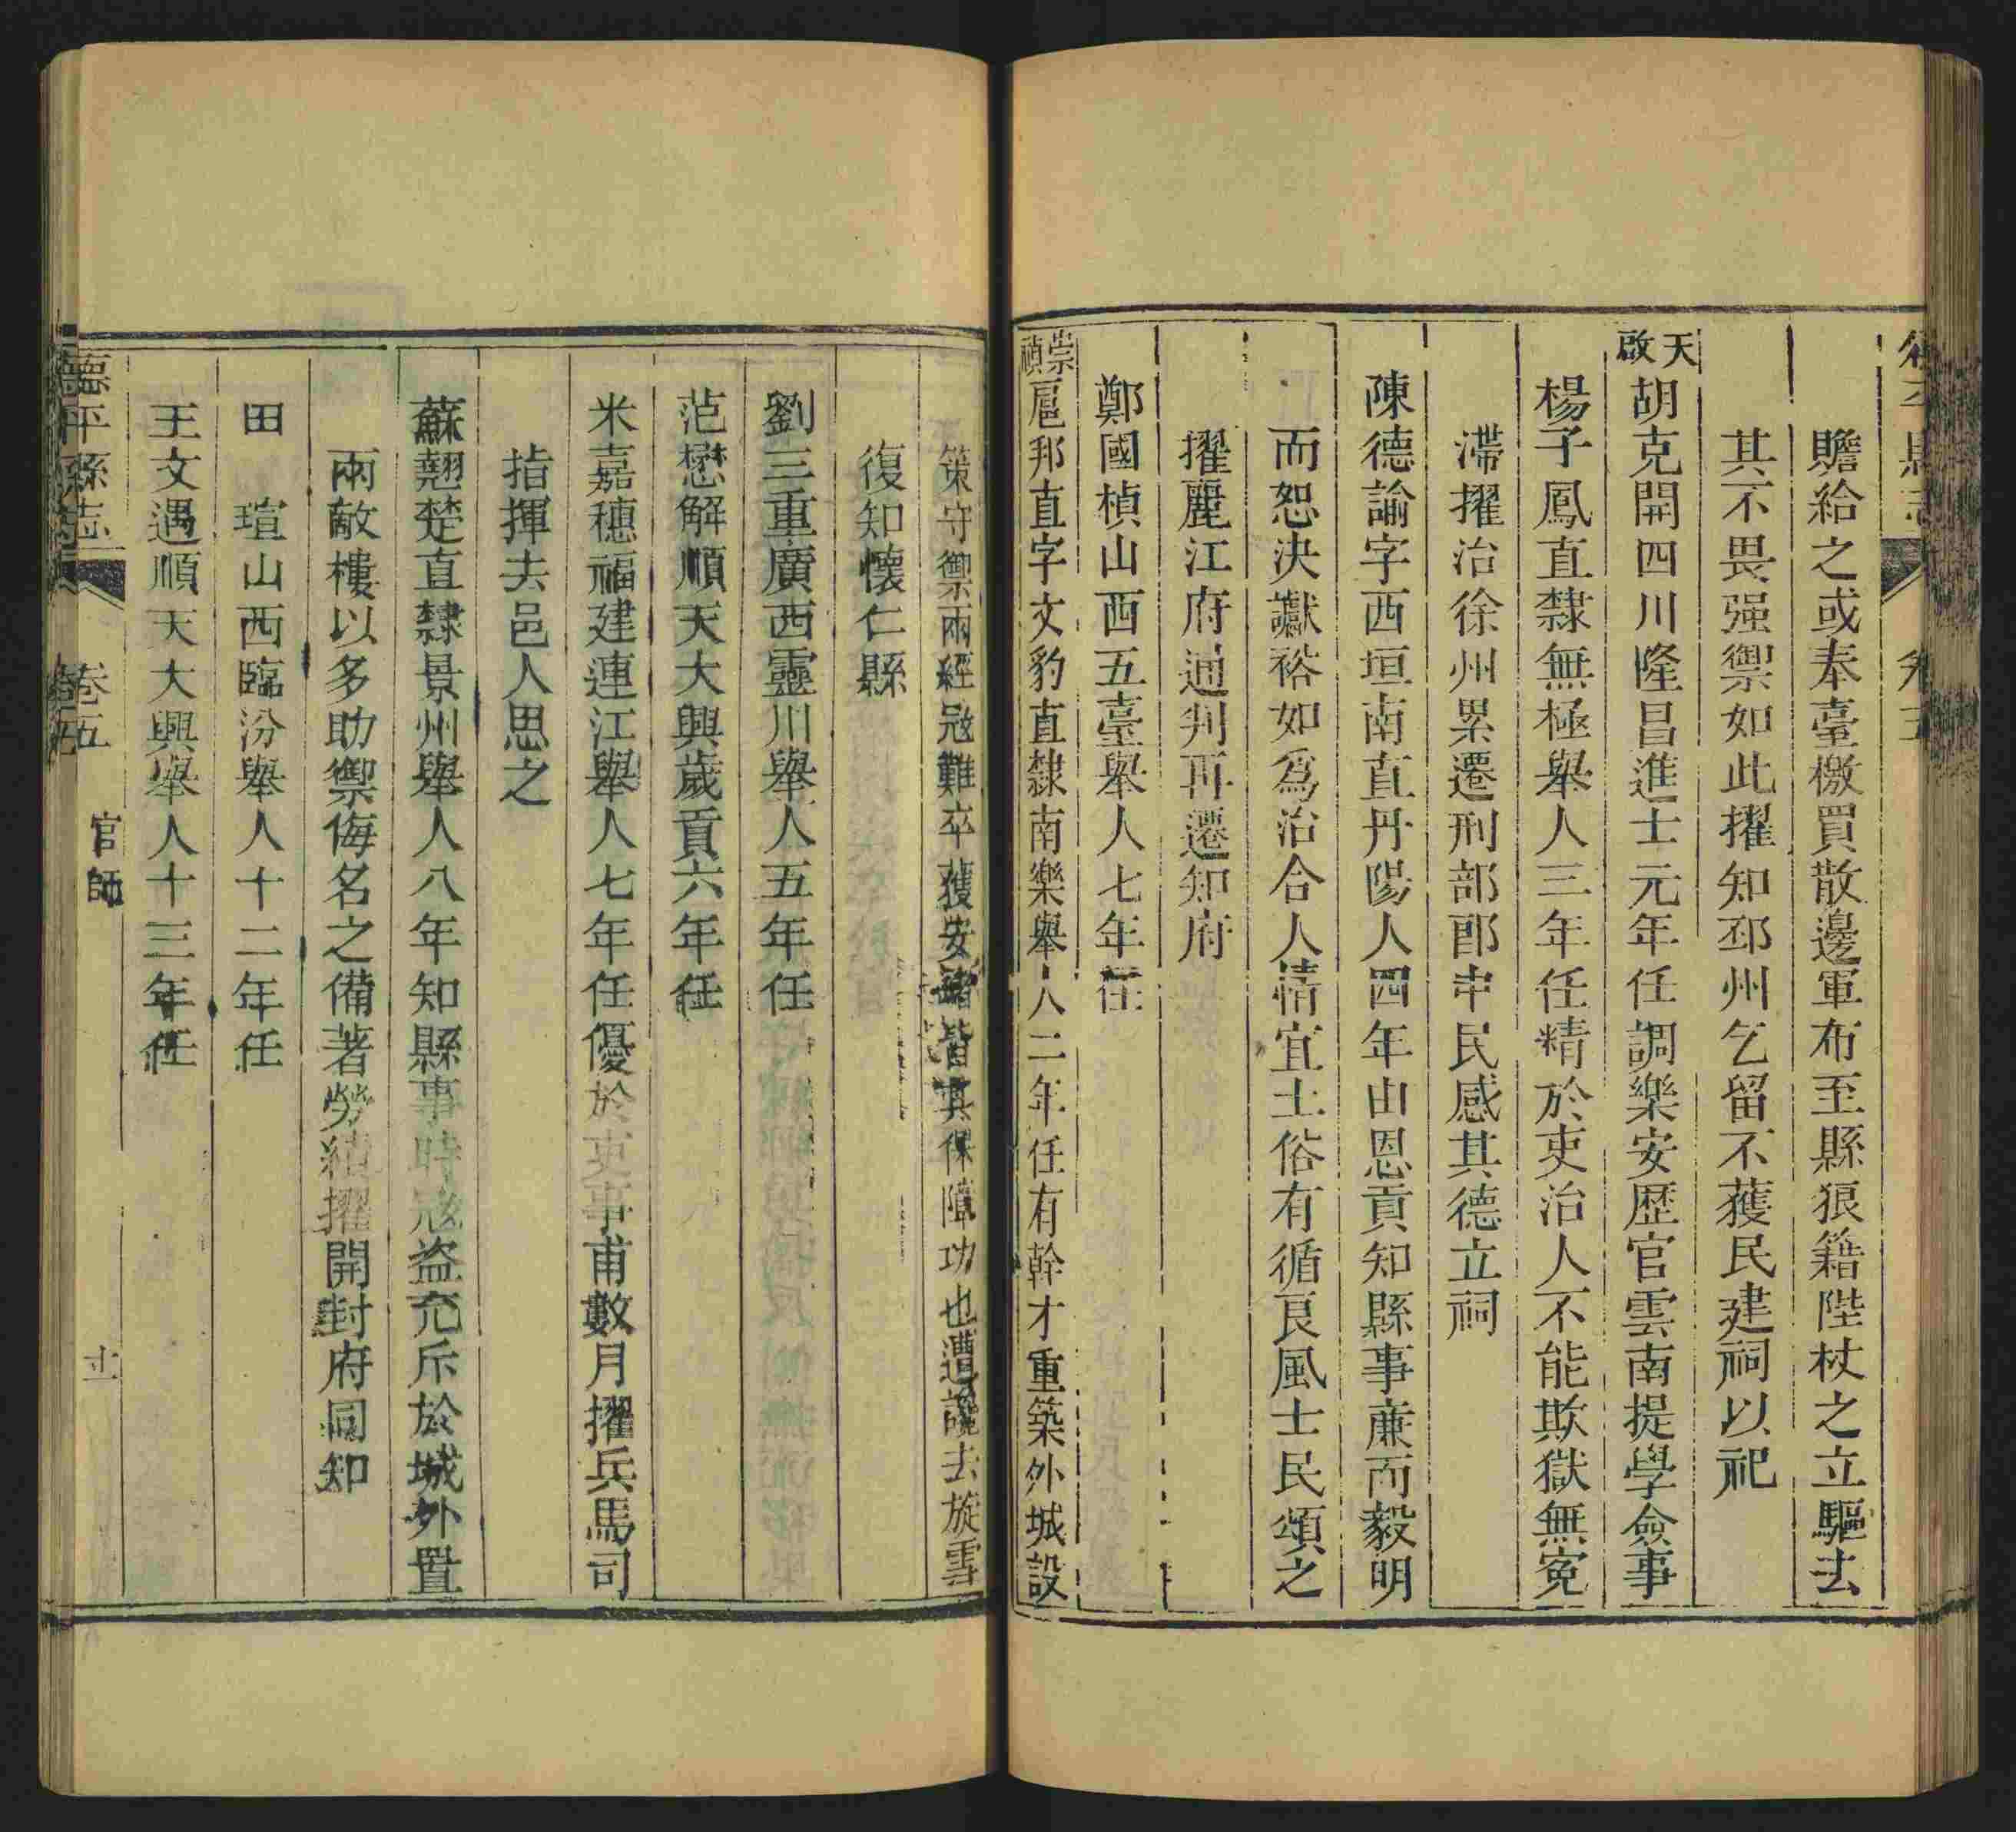 贍給之或奉臺檄買散邊軍布至縣狼籍陛杖之立驅去
其不畏强禦如此擢知邳州乞留不獲民建祠以祀
天啟
胡克開四川隆昌進士元年任調樂安歷官雲南提學僉事
楊子鳳直隸無極舉人三年任精於吏治人不能欺獄無寃
滯擢治徐州累遷刑部郎中民感其德立祠
陳德諭字西垣南直丹陽人四年由恩貢知縣事亷而毅明
而恕決讞裕如爲治合人情宜土俗有循良風士民頌之
擢麗江府通判再遷知府
鄭國楨山西五臺舉人七年任
崇禎
扈邦直字文豹直隸南樂舉人二年任有幹才重築外城設
策守禦兩經㓂難卒獲安諸皆其保障功也遭讒去旋雪
復知懷仁縣
劉三重廣西靈川舉人五年任
范懋解順天大興歲貢六年任
米嘉穗福建連江舉人七年任優於吏事甫數月擢兵馬司
指揮去邑人思之
蘇翹楚直隸景州舉人八年知縣事時㓂盗充斥於城外置
兩敵樓以多助禦侮名之備著勞績擢開封府同知
田 瑄山西臨汾舉人十二年任
王文遇順天大興舉人十三年任
德平縣志 卷五 官師